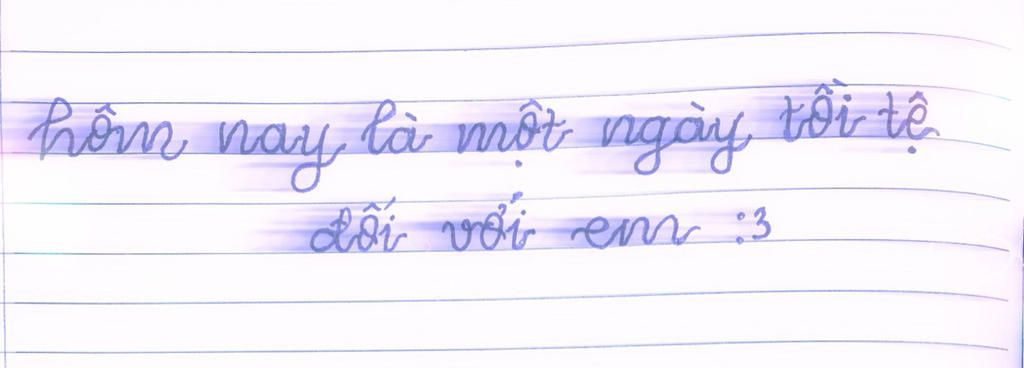 hôm nay là một ngày tồi tệ
đối với em :3